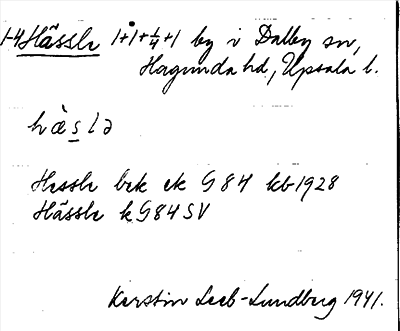 1-4 Hässle 1+1+¼+1 by i Dalby sn,
Hagunda hd, Upsala l.
hæ̀s̱lə
Hessle bek ek G84 kb 1928
Hässle k G84SV
Kerstin Leeb-Lundberg 1941.